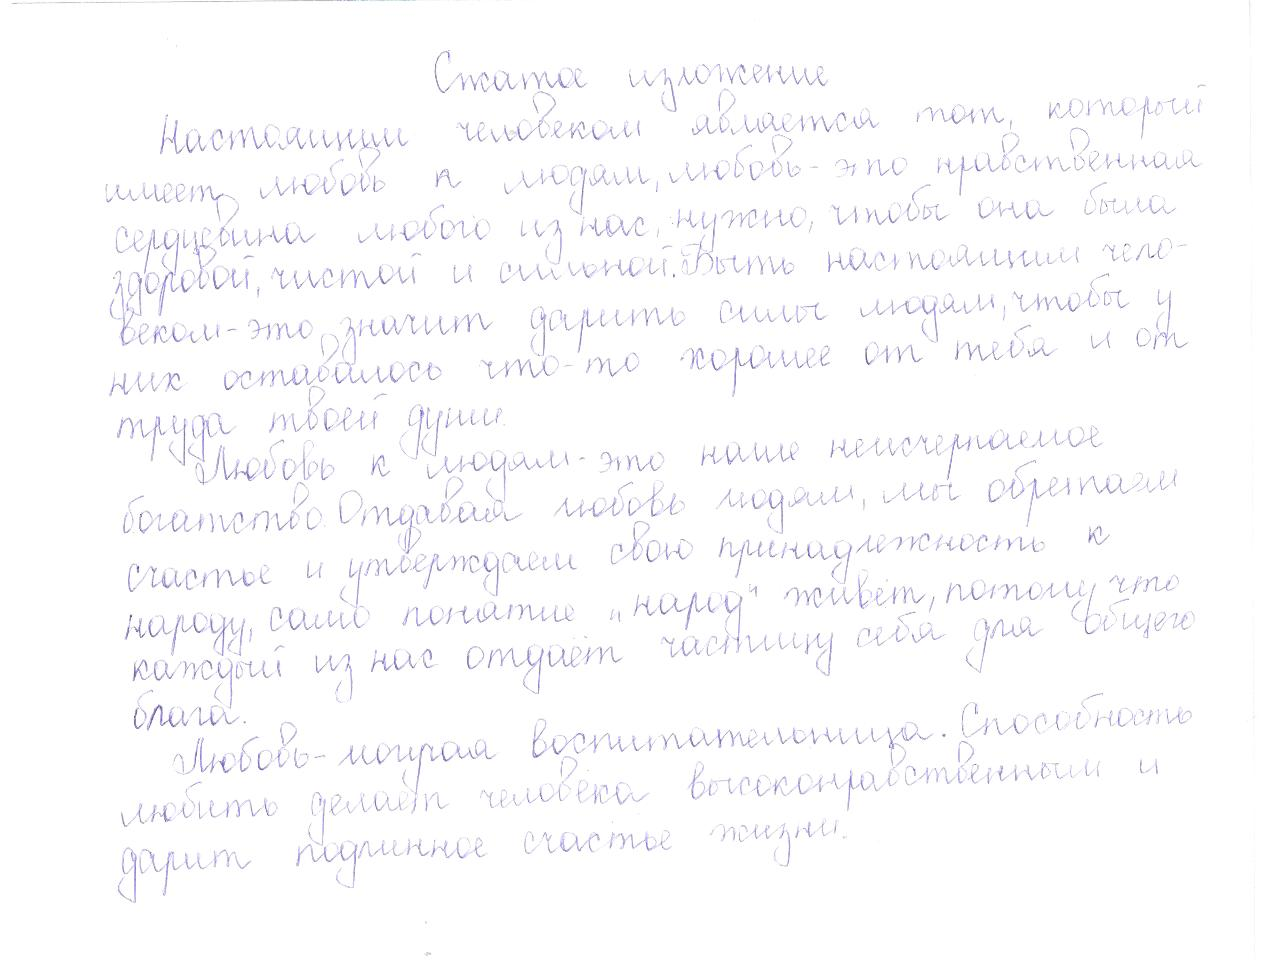 Сжатое изложение
Настоящим человеком является тот, который
имеет любовь к людям, любовь - это нравственная
сердцевина любого из нас, нужно, чтобы она была
здоровой, чистой и сильной. Быть настоящим чело-
веком - это значит дарить силы людям, чтобы у
них оставалось что-то хорошее от тебя и от
труда твоей души.
Любовь к людям - это наше неисчерпаемое
богатство. Отдавая любовь людям, мы обретаем
счастье и утверждаем свою принадлежность к
народу, само понятие „народ" живёт, потому что
каждый из нас отдаёт частицу себя для общего
блага.
Любовь - могучая воспитательница. Способность
любить делает человека высоконравственным и
дарит подлинное счастье жизни.